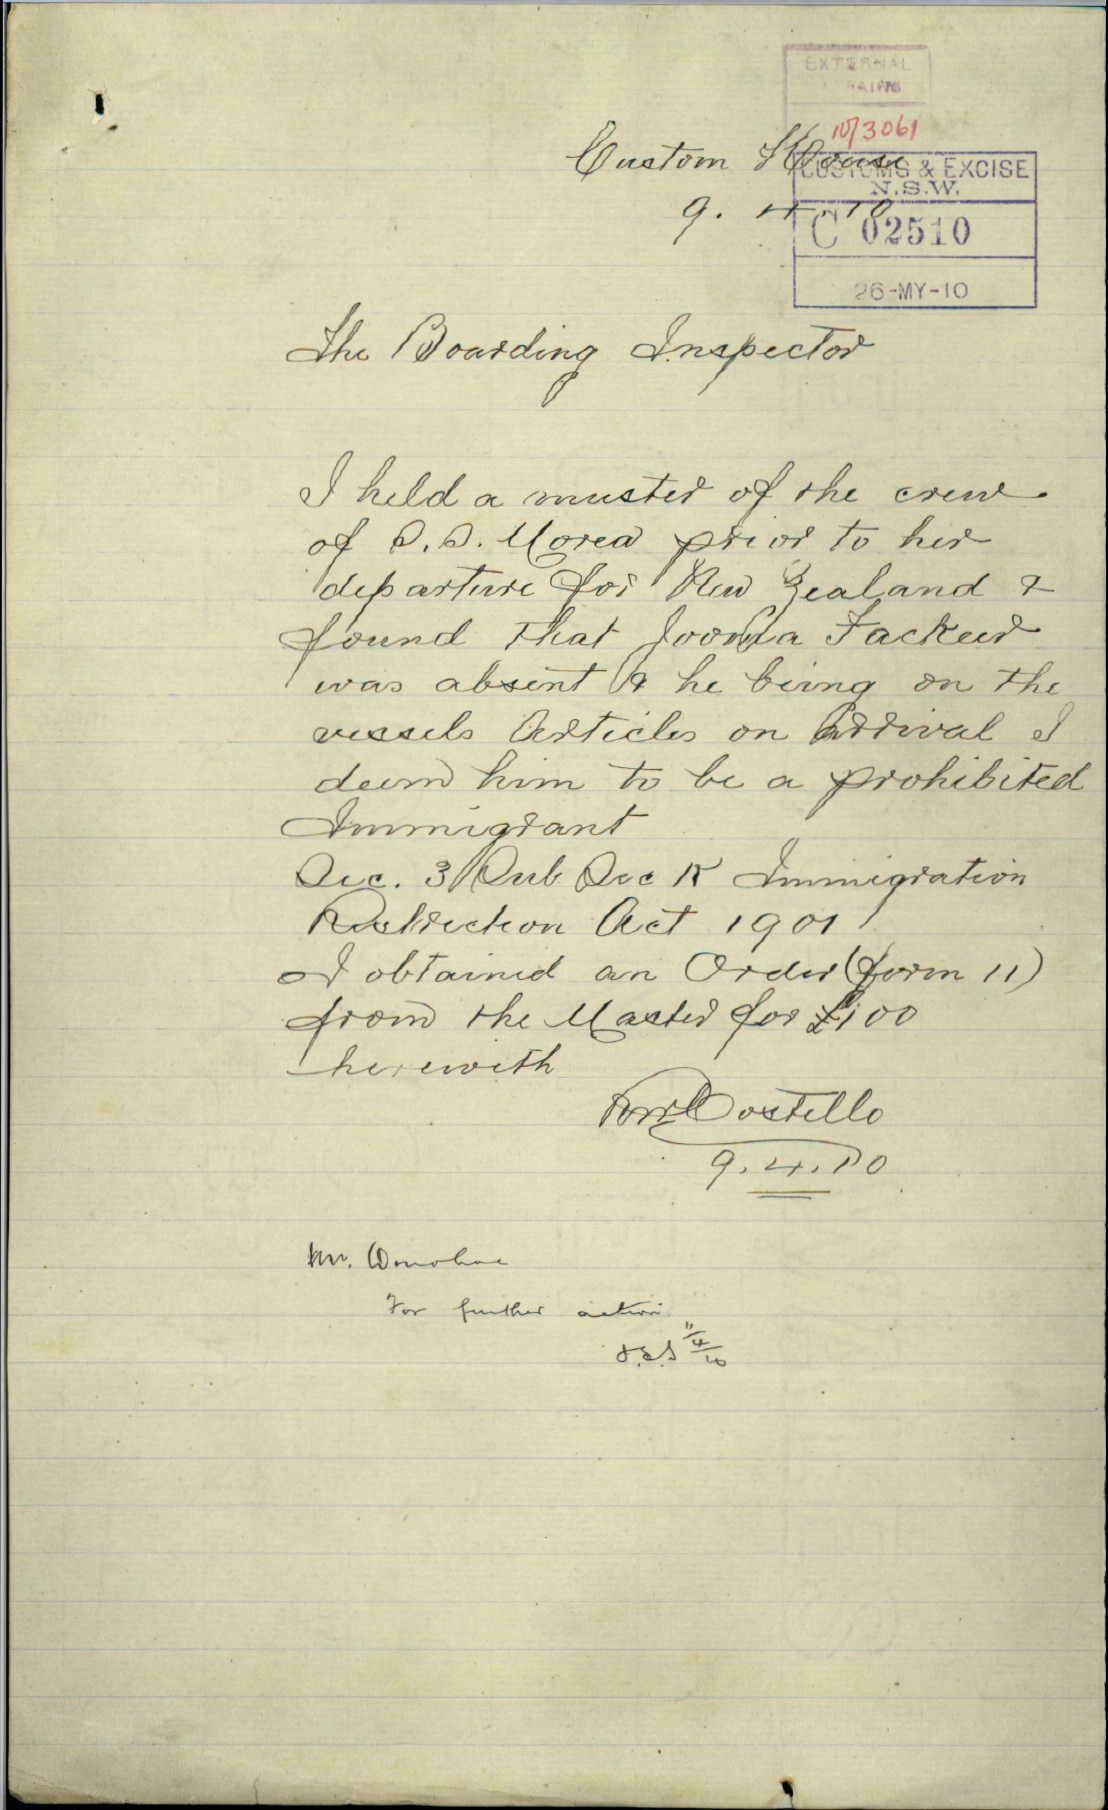 EXTERNAL
10/3061
Custom House
CUSTOMS & EXCISE
N.S.W.
9. 4. 10
C 02510
26-MY-10
The Boarding Inspector
I held a muster of the crew
of S.S. Morea prior to her
departure for New Zealand &
found that Jooma Fackeer
was absent & he being on the
vessels Articles on Arrival I
deem him to be a prohibited
Immigrant
Sec. 3 Sub Sec K Immigration
Restriction Act 1901
I obtained an Order (form 11)
from the Master for £100
herewith
Costello
9.4.10
Mr. Donohoe
For further action
11/4/10